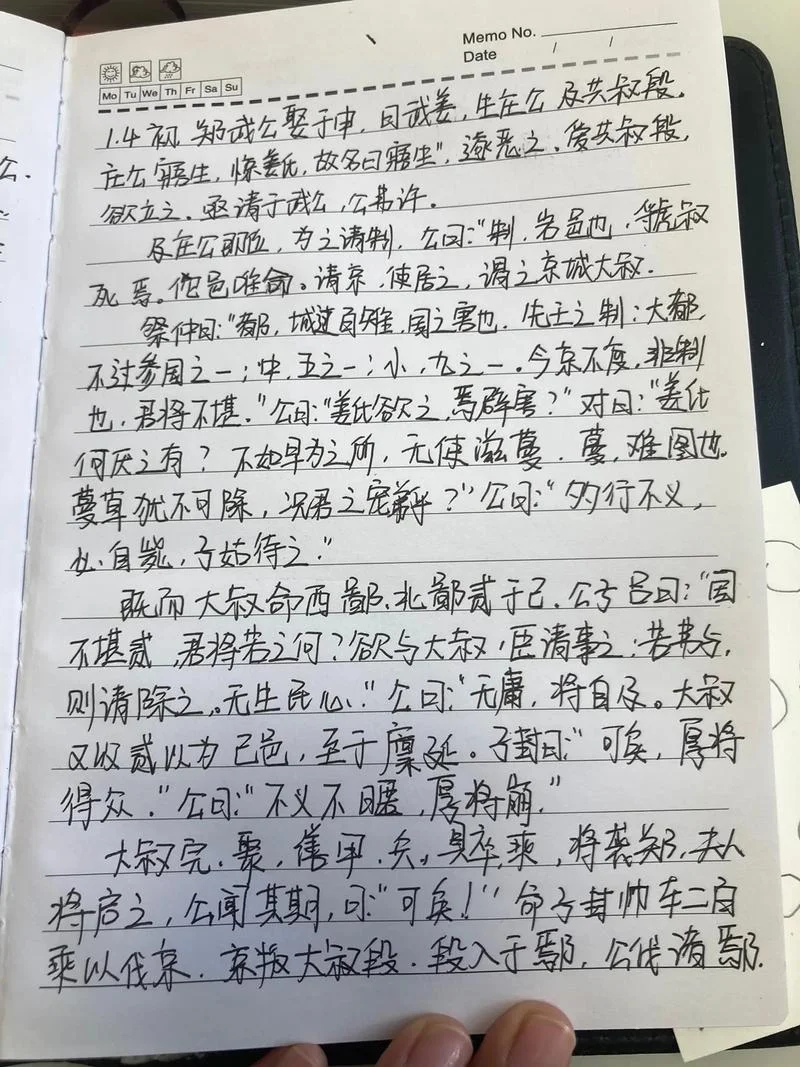 Memo No.
Date / /
Mo Tu We Th Fr Sa Su
1.4 初, 郑武公娶于申, 曰武姜, 生庄公及共叔段.
庄公寤生, 惊姜氏, 故名曰寤生", 遂恶之. 爱共叔段,
欲立之. 亟请于武公, 公弗许.
及庄公即位, 为之请制, 公曰:"制, 岩邑也, 虢叔
死焉。佗邑唯命。请京, 使居之, 谓之京城大叔.
祭仲曰:"都, 城过百雉, 国之害也. 先王之制: 大都,
不过参国之一; 中, 五之一; 小, 九之一. 今京不度, 非制
也, 君将不堪."公曰:"姜氏欲之, 焉辟害?" 对曰:"姜氏
何厌之有? 不如早为之所, 无使滋蔓. 蔓, 难图也.
蔓草犹不可除, 况君之宠弟乎?"公曰:"多行不义,
必自毙, 子姑待之."
既而大叔命西鄙、北鄙贰于己. 公子吕曰:"国
不堪贰, 君将若之何? 欲与大叔, 臣请事之; 若弗与,
则请除之。无生民心." 公曰:"无庸, 将自及。大叔
又收贰以为己邑, 至于廪延. 子封曰:"可矣, 厚将
得众."公曰:"不义不暱, 厚将崩."
大叔完、聚, 缮甲、兵, 具卒、乘, 将袭郑, 夫人
将启之, 公闻其期, 曰:"可矣!" 命子封帅车二百
乘以伐京. 京叛大叔段. 段入于鄢, 公伐诸鄢.
公.